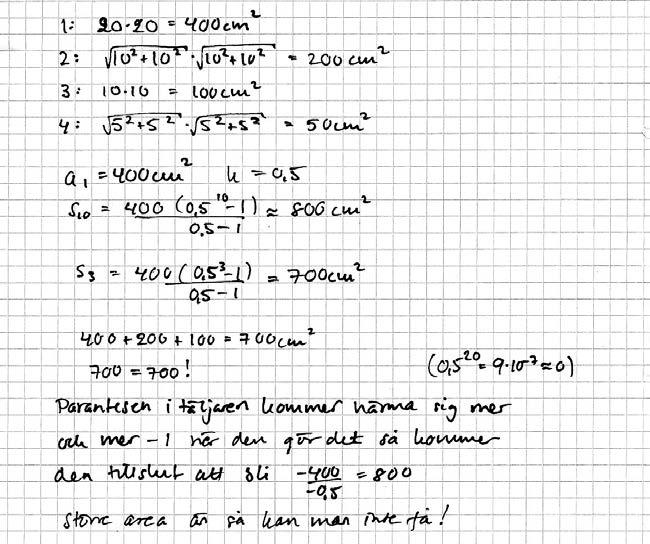 1: 20·20 = 400cm²
2: √(10²+10²)·√(10²+10²) = 200cm²
3: 10·10 = 100cm²
4: √(5²+5²)·√(5²+5²) = 50cm²
a₁ = 400cm² k = 0,5
S₁₀ = 400(0,5¹⁰-1)/(0,5-1) ≈ 800cm²
S₃ = 400(0,5³-1)/(0,5-1) = 700cm²
400+200+100 = 700cm²
700 = 700! (0,5²⁰ = 9·10⁻⁷ ≈ 0)
Parantesen i täljaren kommer närma sig mer
och mer -1 när den gör det så kommer
den tillslut att bli -400/-0,5 = 800
större area än så kan man inte få!